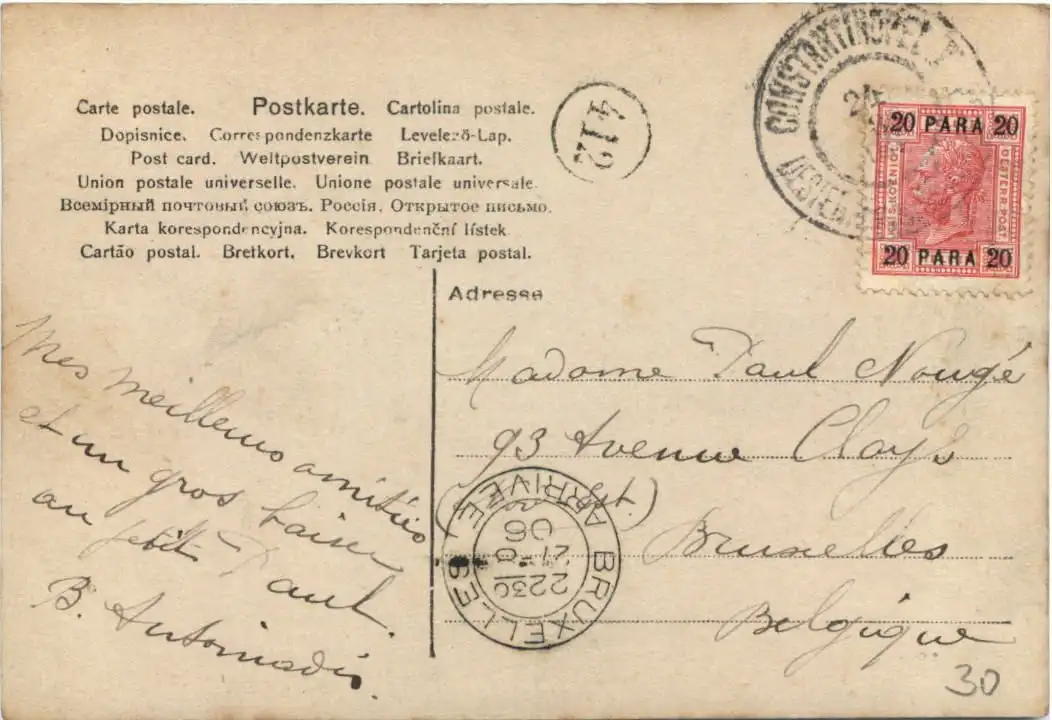 Carte postale. Postkarte. Cartolina postale.
Dopisnice. Correspondenzkarte Levelező-Lap.
Post card. Weltpostverein Briefkaart.
Union postale universelle. Unione postale universale.
Всемірный почтовый союзъ. Россія. Открытое письмо.
Karta korespondencyjna. Korespondenční lístek
Cartão postal. Bretkort. Brevkort Tarjeta postal.
412
CONSTANTINOPEL
20 PARA 20
KAIS. KOENIGL.
OESTERR. POST
20 PARA 20
Adresse
Madame Paul Nougé
93 Avenue Clays
Bruxelles
Belgique
BRUXELLES ARRIVÉE
2230
06
Mes meilleures amitiés
et un gros baiser
au petit Paul.
B. Antoniadis.
30